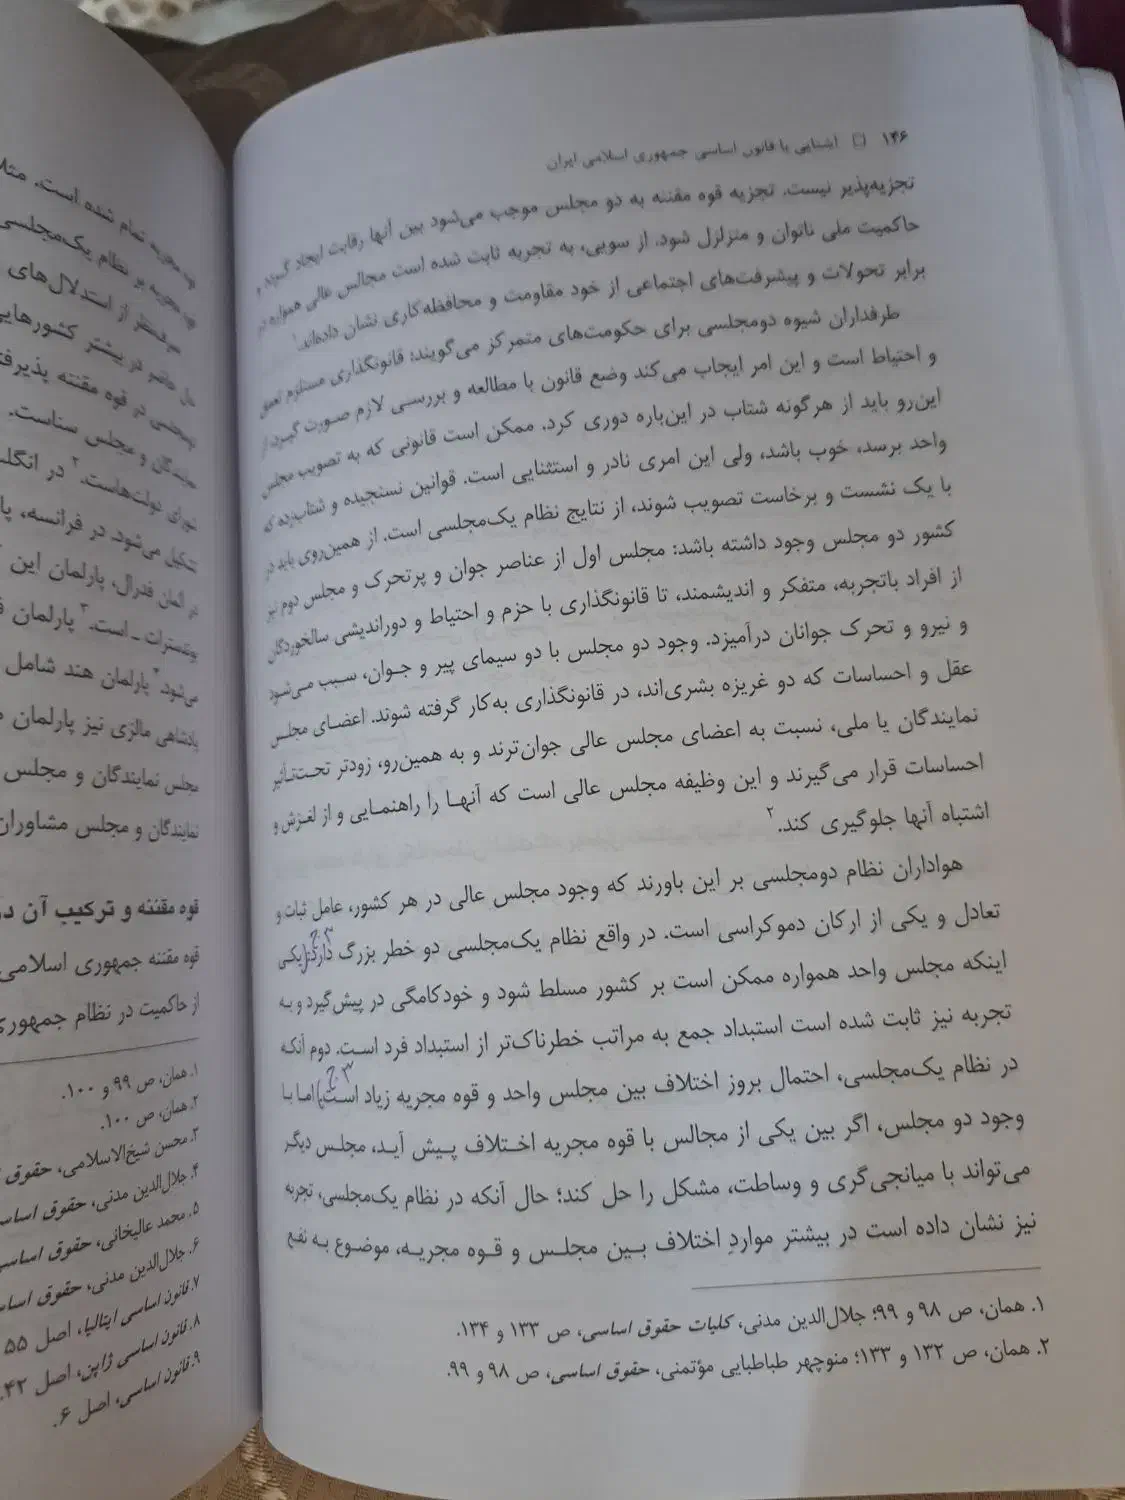 ۱۴۶ آشنایی با قانون اساسی جمهوری اسلامی ایران
تجزیه‌پذیر نیست. تجزیه قوه مقننه به دو مجلس موجب می‌شود بین آنها رقابت ایجاد گردد و
حاکمیت ملی ناتوان و متزلزل شود. از سویی، به تجربه ثابت شده است مجالس عالی همواره در
برابر تحولات و پیشرفت‌های اجتماعی از خود مقاومت و محافظه‌کاری نشان داده‌اند.۱
طرفداران شیوه دومجلسی برای حکومت‌های متمرکز می‌گویند: قانونگذاری مستلزم تعمق
و احتیاط است و این امر ایجاب می‌کند وضع قانون با مطالعه و بررسی لازم صورت گیرد. از
این‌رو باید از هرگونه شتاب در این‌باره دوری کرد. ممکن است قانونی که به تصویب مجلس
واحد برسد، خوب باشد، ولی این امری نادر و استثنایی است. قوانین نسنجیده و شتاب‌زده که
با یک نشست و برخاست تصویب شوند، از نتایج نظام یک‌مجلسی است. از همین‌روی باید در
کشور دو مجلس وجود داشته باشد: مجلس اول از عناصر جوان و پرتحرک و مجلس دوم نیز
از افراد باتجربه، متفکر و اندیشمند، تا قانونگذاری با حزم و احتیاط و دوراندیشی سالخوردگان
و نیرو و تحرک جوانان درآمیزد. وجود دو مجلس با دو سیمای پیر و جوان، سبب می‌شود
عقل و احساسات که دو غریزه بشری‌اند، در قانونگذاری به‌کار گرفته شوند. اعضای مجلس
نمایندگان یا ملی، نسبت به اعضای مجلس عالی جوان‌ترند و به همین‌رو، زودتر تحت‌تأثیر
احساسات قرار می‌گیرند و این وظیفه مجلس عالی است که آنها را راهنمایی و از لغزش و
اشتباه آنها جلوگیری کند.۲
هواداران نظام دومجلسی بر این باورند که وجود مجلس عالی در هر کشور، عامل ثبات و
تعادل و یکی از ارکان دموکراسی است. در واقع نظام یک‌مجلسی دو خطر بزرگ دارد: یکی
اینکه مجلس واحد همواره ممکن است بر کشور مسلط شود و خودکامگی در پیش گیرد و به
تجربه نیز ثابت شده است استبداد جمع به مراتب خطرناک‌تر از استبداد فرد است. دوم آنکه
در نظام یک‌مجلسی، احتمال بروز اختلاف بین مجلس واحد و قوه مجریه زیاد است) اما با
وجود دو مجلس، اگر بین یکی از مجالس با قوه مجریه اختلاف پیش آید، مجلس دیگر
می‌تواند با میانجی‌گری و وساطت، مشکل را حل کند؛ حال آنکه در نظام یک‌مجلسی، تجربه
نیز نشان داده است در بیشتر مواردِ اختلاف بین مجلس و قوه مجریه، موضوع به نفع
۱. همان، ص ۹۸ و ۹۹؛ جلال‌الدین مدنی، کلیات حقوق اساسی، ص ۱۳۳ و ۱۳۴.
۲. همان، ص ۱۳۲ و ۱۳۳؛ منوچهر طباطبایی مؤتمنی، حقوق اساسی، ص ۹۸ و ۹۹.
تمام شده است. مثلا
بر نظام یک‌مجلسی
صرف‌نظر از استدلال‌های
حال حاضر در بیشتر کشورهای
در قوه مقننه پذیرفت
نمایندگان و مجلس سناست.
شورای دولت‌هاست.۲ در انگلس
تشکیل می‌شود. در فرانسه، پا
در آلمان فدرال، پارلمان این
بوندسرات ـ است.۳ پارلمان
می‌شود.۴ پارلمان هند شامل
پادشاهی مالزی نیز پارلمان
مجلس نمایندگان و مجلس
نمایندگان و مجلس مشاوران
قوه مقننه و ترکیب آن در
قوه مقننه جمهوری اسلامی
از حاکمیت در نظام جمهوری
۱. همان، ص ۹۹ و ۱۰۰.
۲. همان، ص ۱۰۰.
۳. محسن شیخ‌الاسلامی، حقوق
۴. جلال‌الدین مدنی، حقوق اساسی
۵. محمد عالیخانی، حقوق اساسی
۶. جلال‌الدین مدنی، حقوق اساسی
۷. قانون اساسی ایتالیا، اصل ۵۵
۸. قانون اساسی ژاپن، اصل ۴۲.
۹. قانون اساسی، اصل ۶.